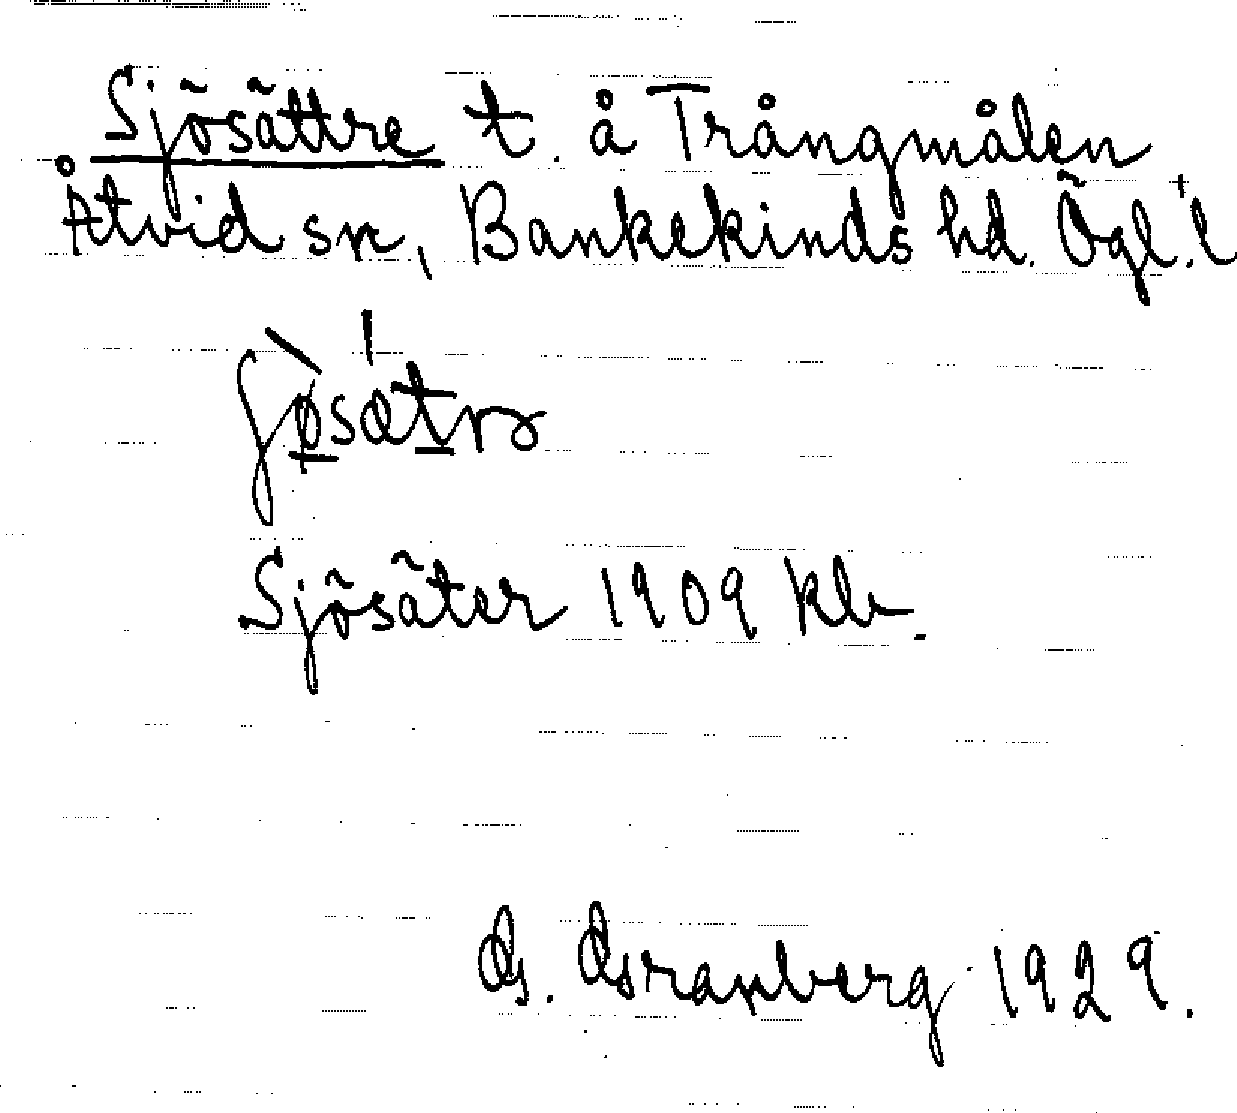 Sjösättre t. å Trångmålen
Åtvid sn, Bankekinds hd. Ögl. l
Sjösäter 1909 kb.
G. Granberg 1929.